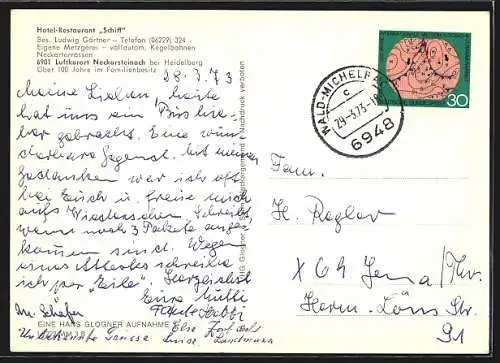 Hotel-Restaurant „Schiff"
Bes. Ludwig Gärtner – Telefon (06229) 324
Eigene Metzgerei – vollautom. Kegelbahnen
Neckarterrassen
6901 Luftkurort Neckarsteinach bei Heidelberg
Über 100 Jahre im Familienbesitz
28.3.73
Meine Lieben, heute
hat uns ein Bus hier-
her gebracht. Eine wun
derbare Gegend. Mit meinen
Gedanken war ich oft
bei Euch u. freue mich
aufs Wiedersehen. Schreibt,
wenn noch 3 Pakete ange-
kommen sind. Wegen
eines Attestes schreibe
ich per "Eile". Herzlichst
Eure Mutti
M. Schäfer
Else
Luise Landmann
EINE HANS GLOGNER AUFNAHME
HG Glogner
Nachdruck verboten
WALD-MICHELBACH
c
29-3.73-18
6948
DEUTSCHE BUNDESPOST
30
Fam.
H. Kegler
X 69 Jena / Thür.
Herm. Löns Str.
91